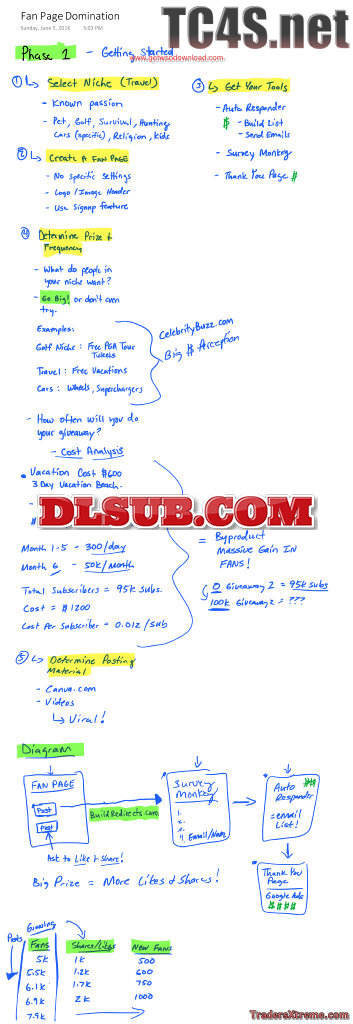 Fan Page Domination
Sunday, June 5, 2016 5:03 PM
TC4S.net
Phase 1 - Getting Started
www.getwsodownload.com
① ↳ Select Niche (Travel)
- Known passion
- Pet, Golf, Survival, Hunting
Cars (specific), Religion, Kids
② ↳ Create a Fan Page
- No specific settings
- Logo / Image Header
- Use Signup feature
③ ↳ Get Your Tools
- Auto Responder
$ - Build List
- Send Emails
- Survey Monkey
- Thank You Page $
④ Determine Prize &
Frequency
- What do people in
your niche want?
- Go Big! or don't even
try.
Examples:
Golf Niche: Free PGA Tour
Tickets
Travel: Free Vacations
Cars: Wheels, Superchargers
CelebrityBuzz.com
Big $ Perception
- How often will you do
your giveaway?
- Cost Analysis
• Vacation Cost $600
3 Day Vacation Beach.
DLSUB.COM
Month 1-5 - 300/day
Month 6 - 50k/month
Total Subscribers = 95k subs.
Cost = $1200
Cost Per Subscriber = 0.012/sub
= Byproduct
Massive Gain In
FANS!
0 Giveaway 2 = 95k subs
100k Giveaway 2 = ???
⑤ ↳ Determine Posting
Material
- Canva.com
- Videos
↳ Viral!
Diagram
FAN PAGE
Post
Post
BuildRedirects.com
Survey
Monkey
1.
2.
3.
4. Email/Name
Auto $$
Responder
=email
List!
Ask to Like & Share!
Big Prize = More Likes & Shares!
Thank You
Page
Google Ads
$$$$
Running
Posts Fans Shares/Likes New Fans
5k 1k 500
5.5k 1.2k 600
6.1k 1.7k 750
6.9k 2k 1000
7.9k
TradersXtreme.com